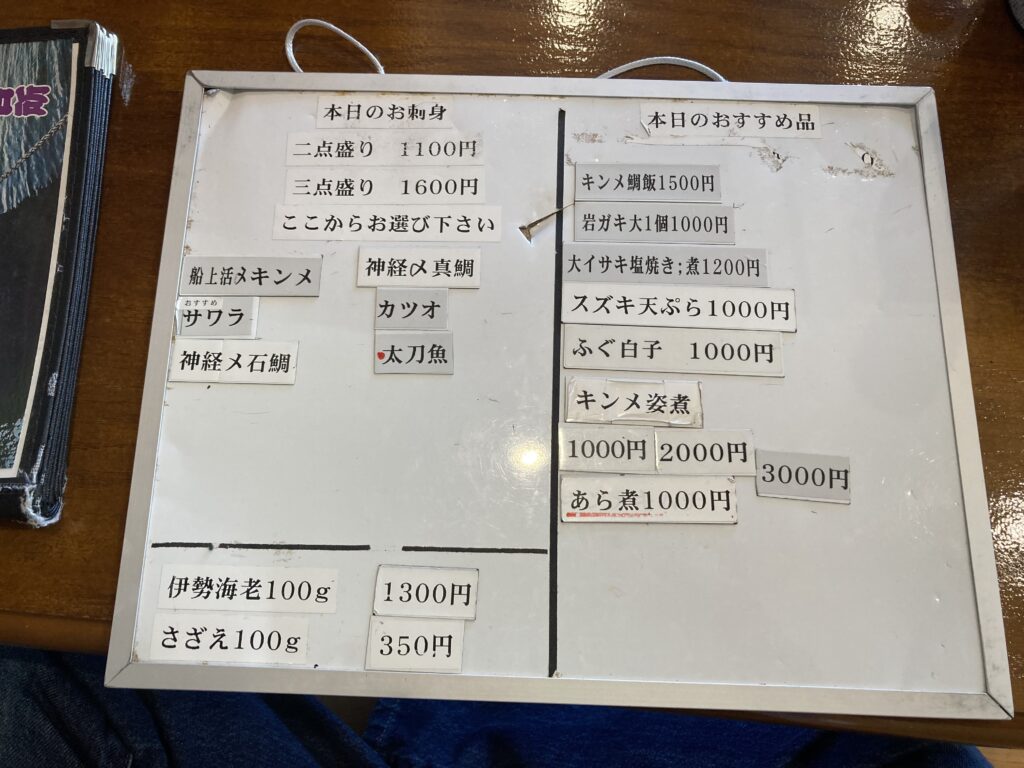 本日のお刺身
二点盛り 1100円
三点盛り 1600円
ここからお選び下さい
船上活〆キンメ
神経〆真鯛
おすすめ
サワラ
カツオ
神経〆石鯛
太刀魚
伊勢海老100g 1300円
さざえ100g 350円
本日のおすすめ品
キンメ鯛飯1500円
岩ガキ大1個1000円
大イサキ塩焼き;煮1200円
スズキ天ぷら1000円
ふぐ白子 1000円
キンメ姿煮
1000円 2000円 3000円
あら煮1000円